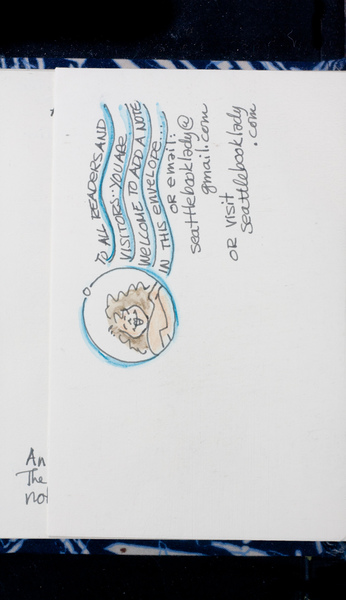 TO ALL READERS AND
VISITORS: YOU ARE
WELCOME TO ADD A NOTE
IN THIS ENVELOPE....
OR email:
seattlebooklady@
gmail.com
OR visit
seattlebooklady
.com
An
The
not